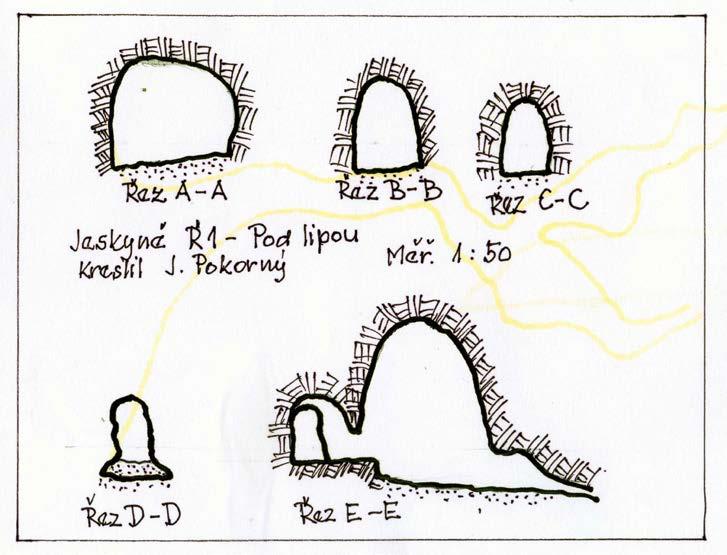 Řez A-A
Řez B-B
Řez C-C
Jaskyně R1 - Pod lipou
Kreslil J. Pokorný
Měř. 1:50
Řez D-D
Řez E-E